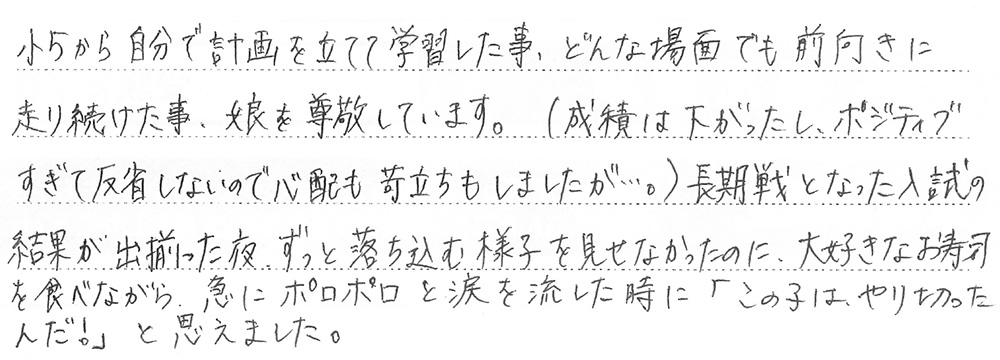 小5から自分で計画を立てて学習した事、どんな場面でも前向きに
走り続けた事、娘を尊敬しています。（成績は下がったし、ポジティブ
すぎて反省しないので心配も苛立ちもしましたが…。）長期戦となった入試の
結果が出揃った夜、ずっと落ち込む様子を見せなかったのに、大好きなお寿司
を食べながら、急にポロポロと涙を流した時に「この子は、やり切った
んだ！」と思えました。